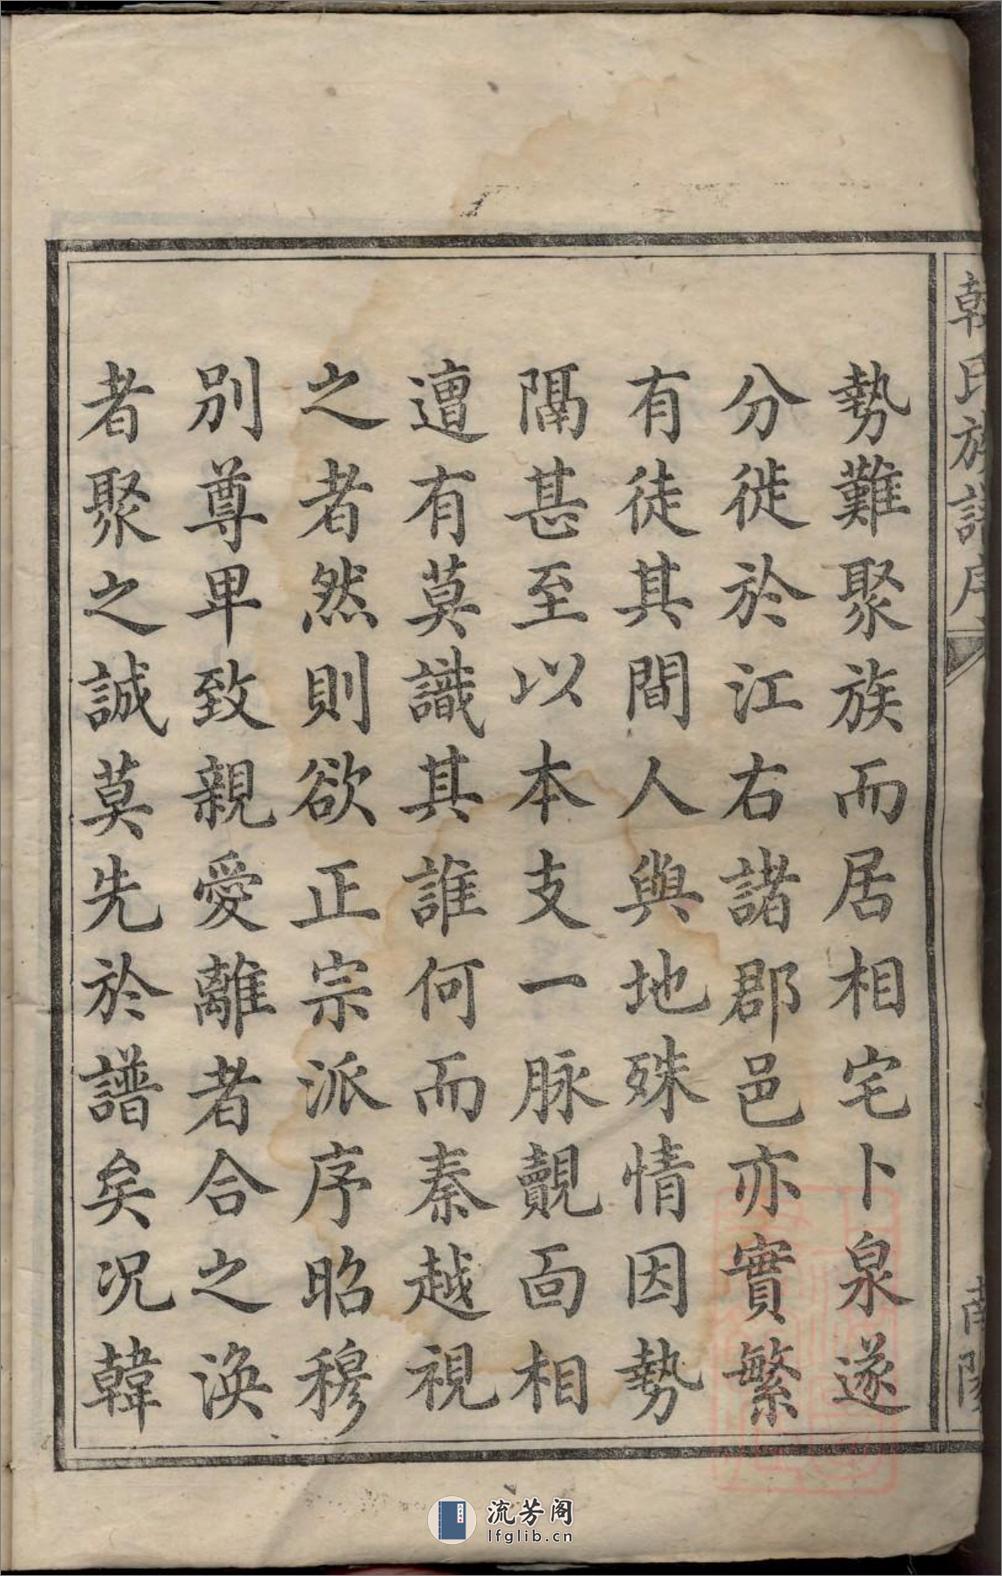 韓氏族譜序
南陽
勢難聚族而居相宅卜泉遂
分徙於江右諸郡邑亦實繁
有徒其間人與地殊情因勢
隔甚至以本支一脉覿面相
遭有莫識其誰何而秦越視
之者然則欲正宗派序昭穆
別尊卑致親愛離者合之渙
者聚之誠莫先於譜矣况韓
流芳阁
lfglib.cn